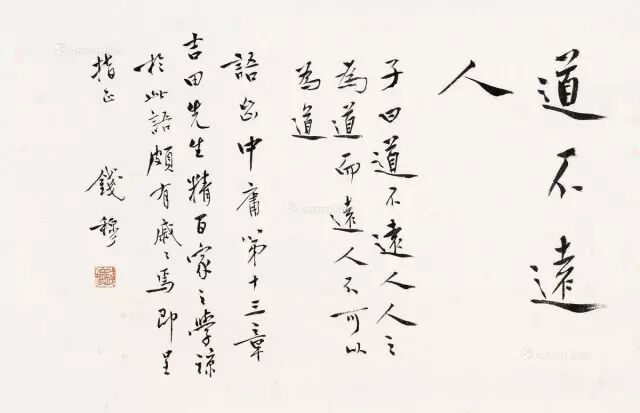 道不遠
人
子曰道不遠人人之
為道而遠人不可以
為道
語出中庸第十三章
吉田先生精百家之學諒
於此語頗有感感焉即呈
指正
錢穆